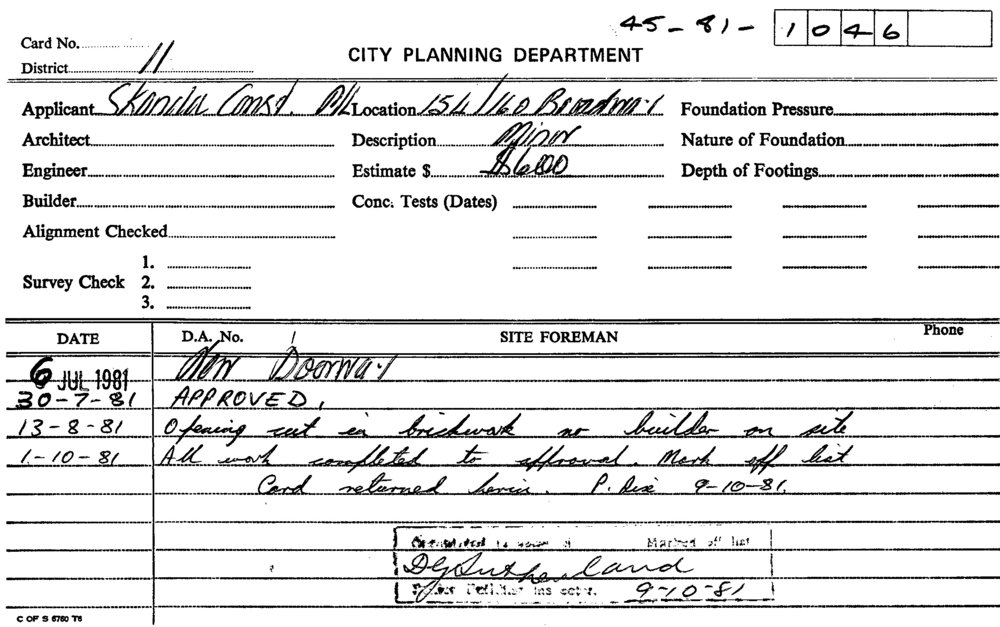 45-81-1046
Card No.
District 11
CITY PLANNING DEPARTMENT
Applicant Skanda Const. P/L Location 154/160 Broadway Foundation Pressure
Architect Description Minor Nature of Foundation
Engineer Estimate $ $6000 Depth of Footings
Builder Conc. Tests (Dates)
Alignment Checked
1.
Survey Check 2.
3.
DATE D.A. No. SITE FOREMAN Phone
6 JUL 1981 New Doorway
30-7-81 APPROVED.
13-8-81 Opening cut in brickwork no builder on site
1-10-81 All work completed to approval. Mark off list
Card returned herein. P. 9-10-81.
Marked off list
DG Sutherland
9-10-81
C OF S 6760 T6